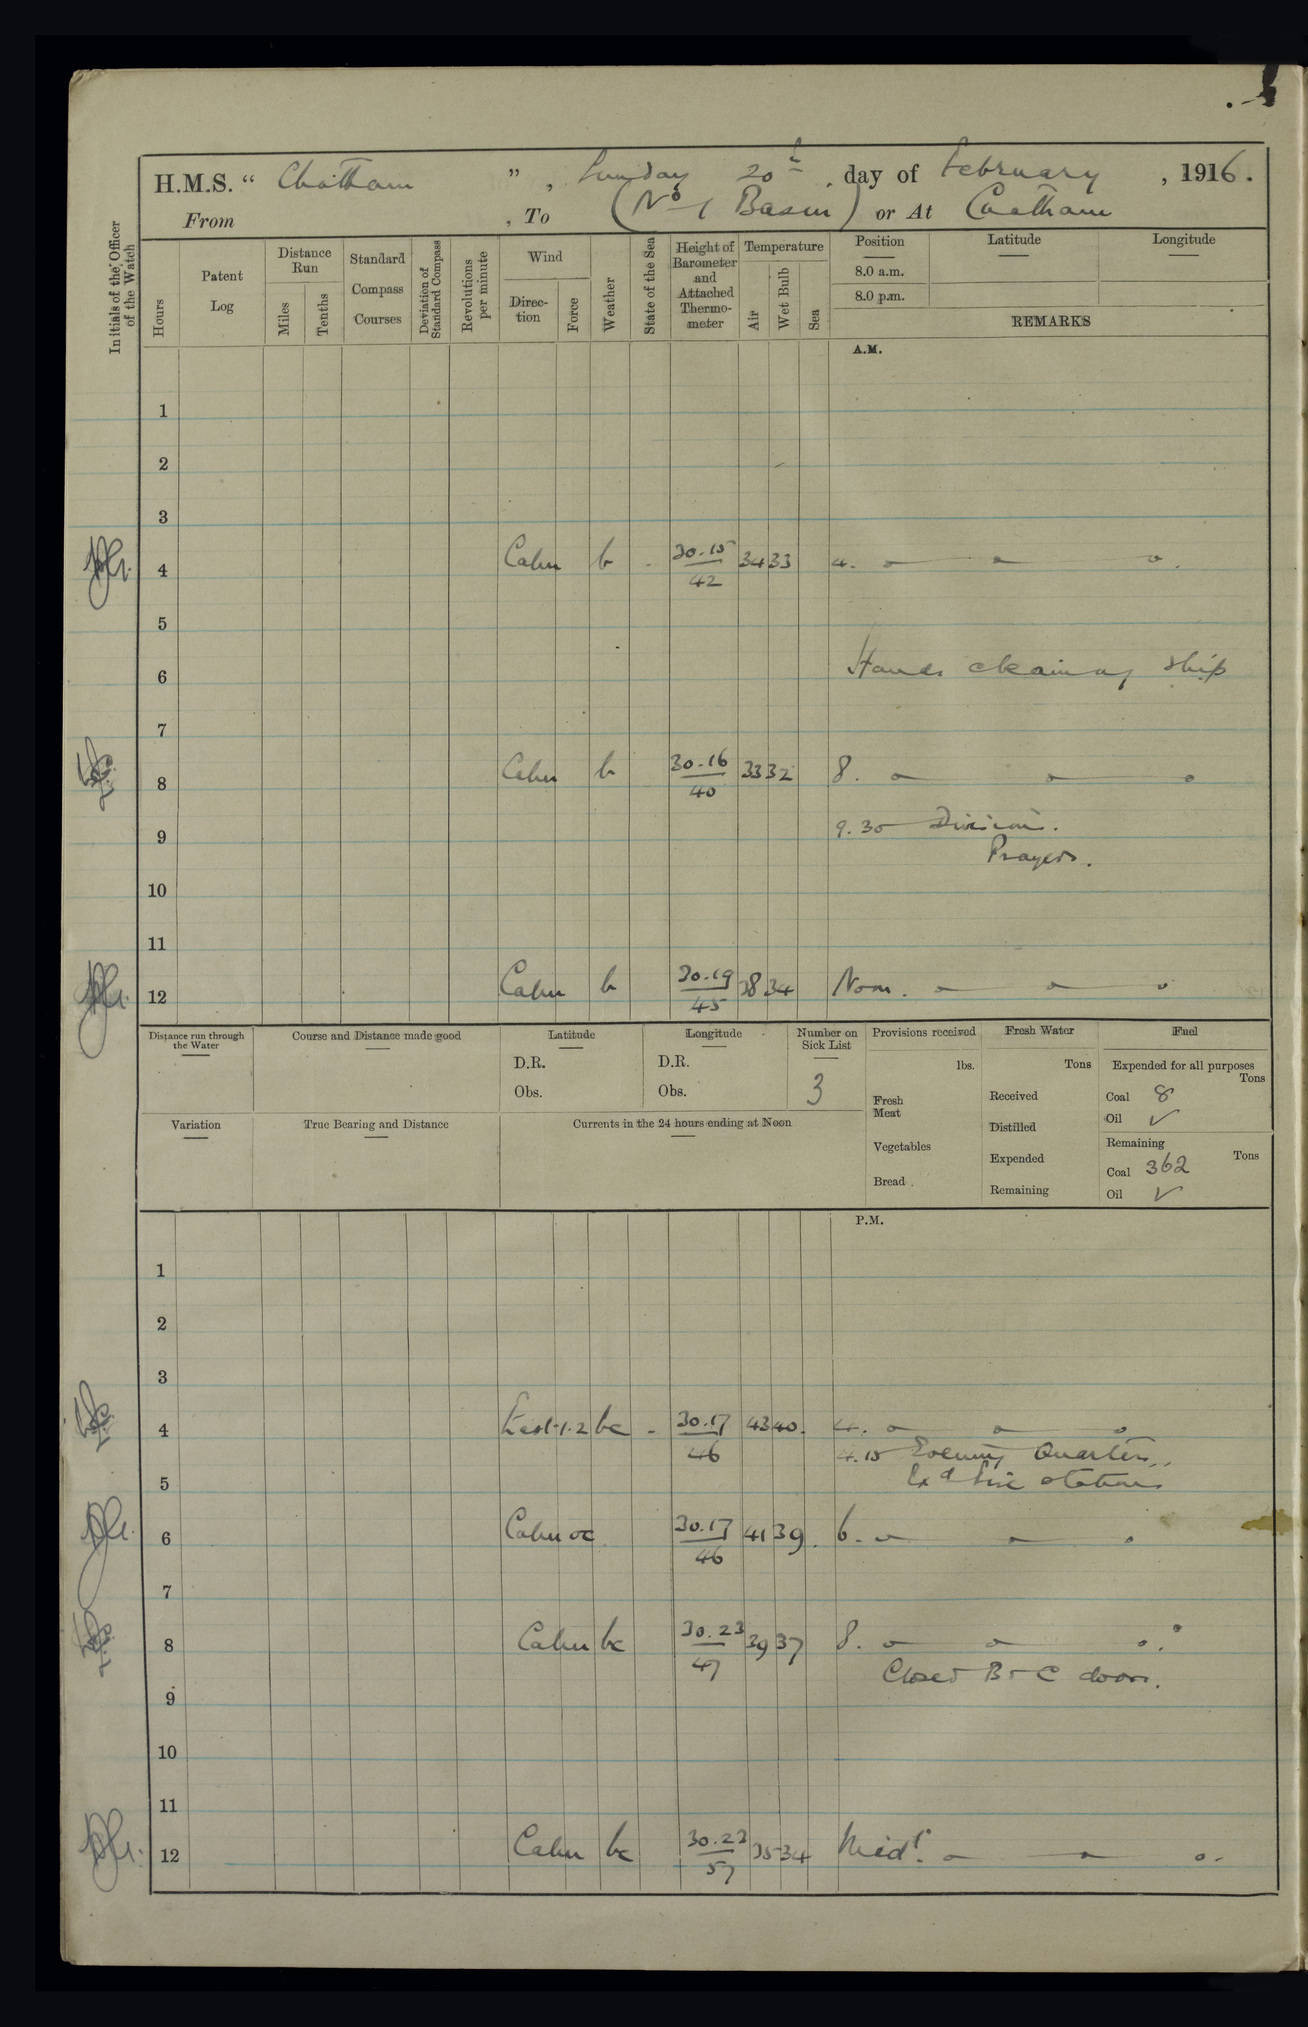 H.M.S. “ Chatham ” , Sunday 20th day of February , 1916.
From , To (No 1 Basin) or At Chatham
Initials of the Officer of the Watch
Hours
Patent Log
Distance Run
Miles
Tenths
Standard Compass Courses
Deviation of Standard Compass
Revolutions per minute
Wind
Direction
Force
Weather
State of the Sea
Height of Barometer and Attached Thermometer
Temperature
Air
Wet Bulb
Sea
Position Latitude Longitude
8.0 a.m.
8.0 p.m.
REMARKS
A.M.
1
2
3
4 Calm b - 30.15 34 33 4. o o o.
42
5
6 Hands cleaning ship
7
8 Calm b 30.16 33 32 8. o o o
40
9 9.30 Divisions.
Prayers.
10
11
12 Calm b 30.19 38 34 Noon. o o o
45
Distance run through the Water
Course and Distance made good
Latitude
D.R.
Obs.
Longitude
D.R.
Obs.
Number on Sick List
3
Provisions received
lbs.
Fresh Meat
Vegetables
Bread
Fresh Water
Tons
Received
Distilled
Expended
Remaining
Fuel
Expended for all purposes
Tons
Coal 8
Oil ✓
Remaining
Tons
Coal 362
Oil ✓
Variation
True Bearing and Distance
Currents in the 24 hours ending at Noon
P.M.
1
2
3
4 East 1.2 bc - 30.17 43 40. 4. o o o
46
4.15 Evening Quarters,
Exd fire stations
5
6 Calm oc 30.17 41 39. 6. o o o
46
7
8 Calm bc 30.23 39 37 8. o o o.
47
Closed B & C doors.
9
10
11
12 Calm bc 30.23 35 34 Midt. o o o.
57